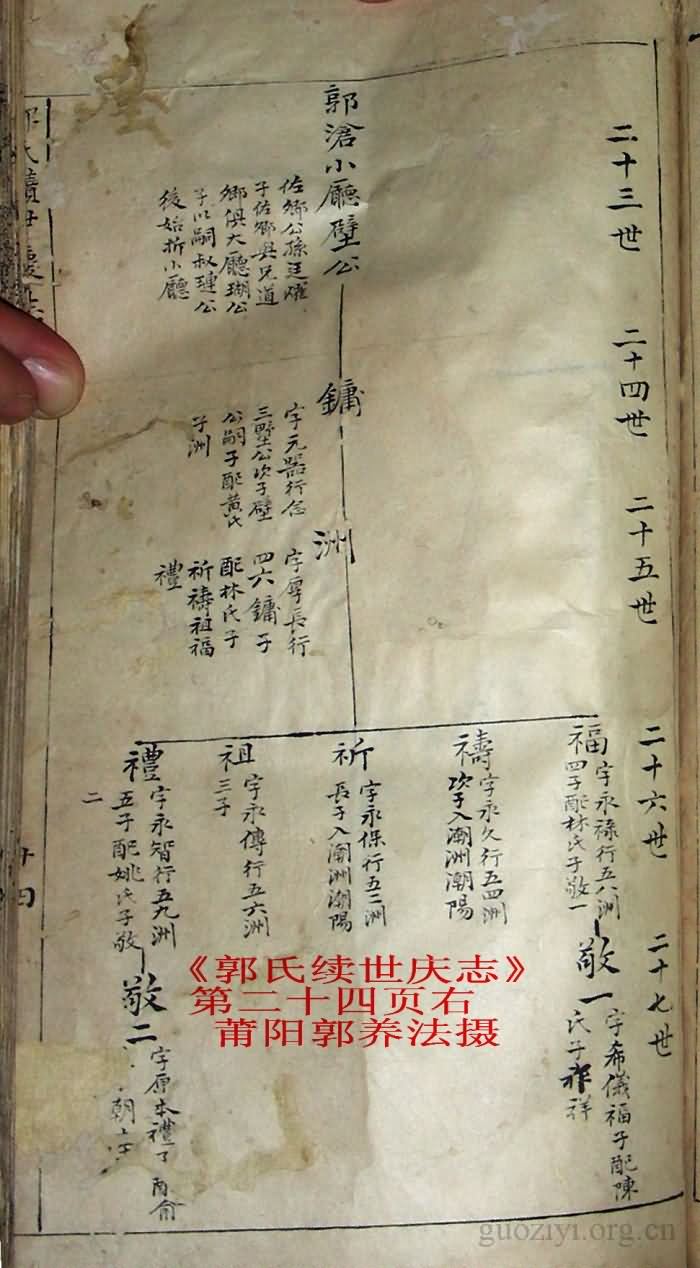 二十三世
二十四世
二十五世
二十六世
二十七世
郭滄小廳壁公
佐鄉公孫廷耀
子佐鄉與兄道
鄉俱大廳瑚公
子以嗣叔璉公
後始折小廳
鏞
字元器行念
三墅公次子壁
公嗣子配黃氏
子洲
洲
字厚長行
四六鏞子
配林氏子
祈禱祖福
禮
福
字永祿行五八洲
四子配林氏子敬一
敬一
字希儀福子配陳
氏子祚祥
禱
字永久行五四洲
次子入潮洲潮陽
祈
字永保行五二洲
長子入潮洲潮陽
祖
字永傳行五六洲
三子
禮
字永智行五九洲
五子配姚氏子敬
二
敬二
字原本禮子
朝
郭氏續世慶志
廿四
《郭氏续世庆志》
第二十四页右
莆阳郭养法摄
guoziyi.org.cn